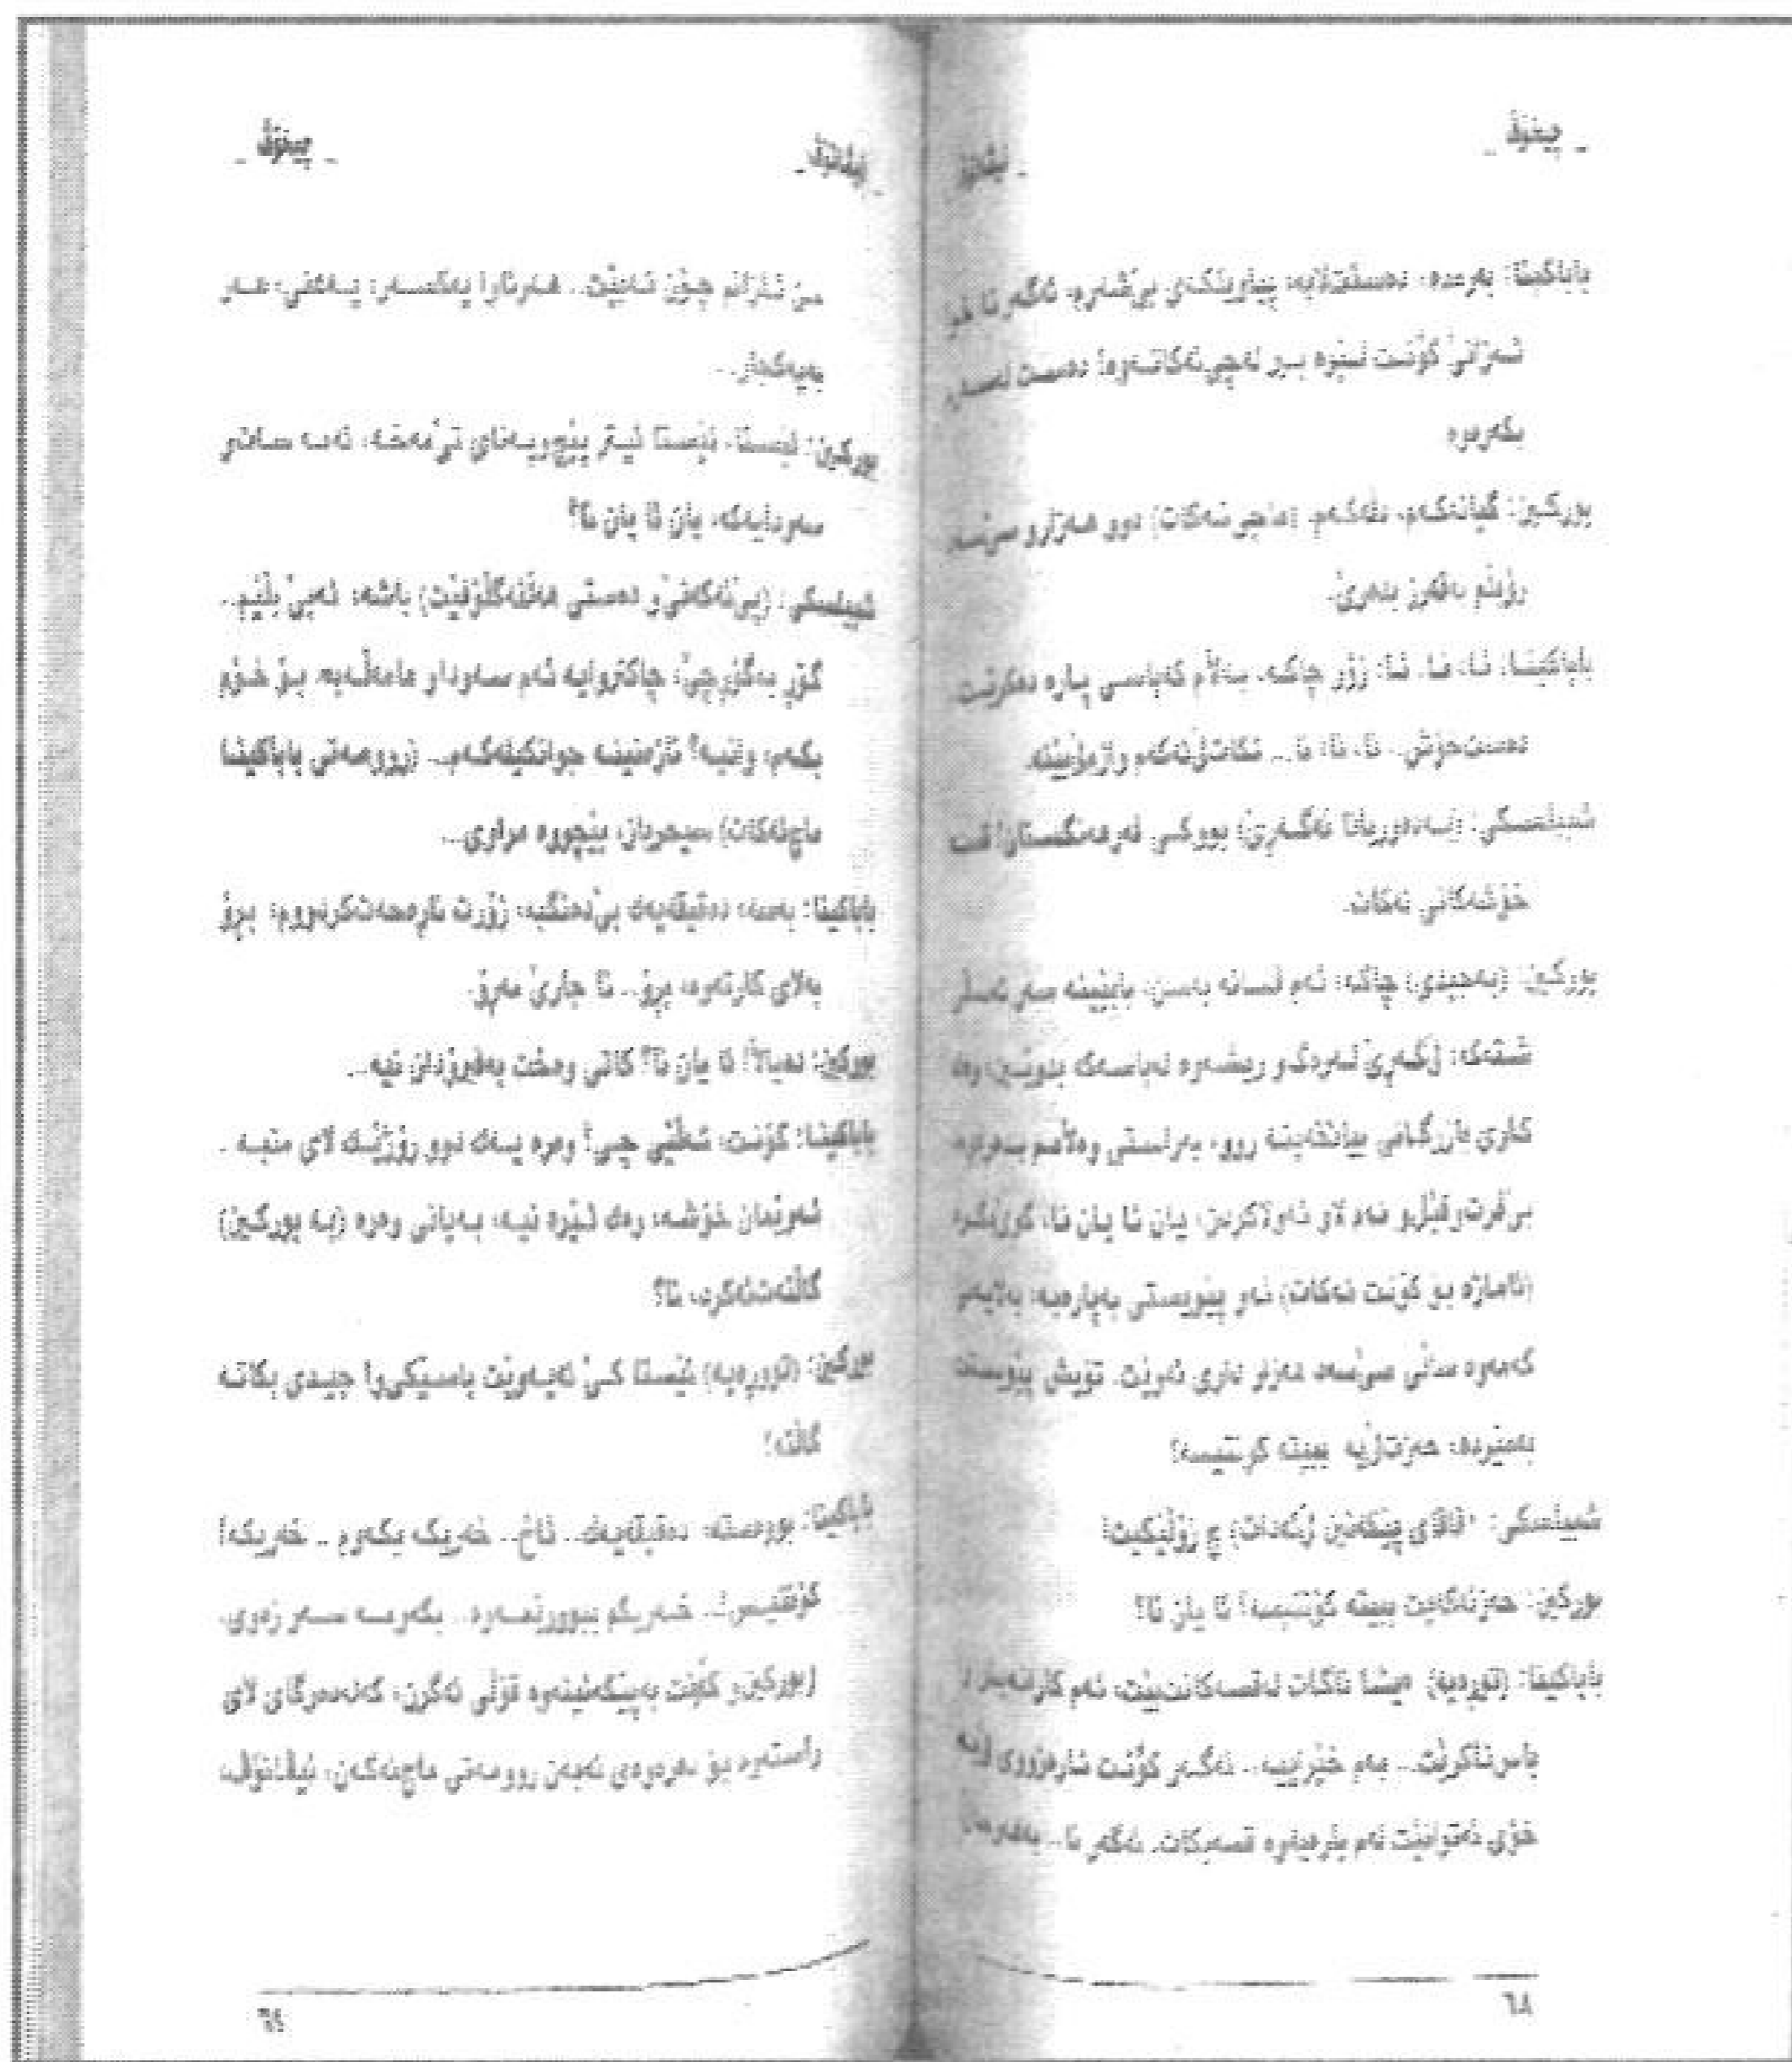 - چیخۆف -
- ئیڤانۆف
باباکینا: بەرمدە، دەستتلابە، پیاوێکەی بێشەرم، ئەگەر نا خۆ
ئەزانێ کۆنت ئیتر بیر لەچی ئەکاتەوە! دەست لەسەر
بکەرەوە
بورکین: گیانەکەم، دڵەکەم، (ماچی ئەکات) دوو هەزارو سێسەد
رۆبڵم بەقەرز بدەرێ.
باباکینا: نا، نا. نا: زۆر چاکە، بەڵام کەباسی پارە دەکرێت
دەستخۆش.. نا، نا، نا... تکاتلێئەکەم وازمبێنە.
شبیلسکی: (بەدەوریانا ئەگەڕێ) بووکی فەرهەنگستان!
خۆشەکانی ئەکات.
بورکین: (بەجیدی) چاکە، ئەم قسانە بەسن، بابێینە سەر ئەسڵی
شتەکە: لێگەڕێ ئەردک و ڕیشەوە لەباسەکە بدوێین، وەک
کاری بازرگانی بیانخەینە روو، بەراستی وەڵامم بدەرەوە
بێفرتوفێڵ و ئەم لاو ئەولاکردن، یان ئا یان نا، گوێبگرە
(ئاماژە بۆ کۆنت ئەکات) ئەو پێویستی بەپارەیە، بەلایەنی
کەمەوە ساڵی سێسەد هەزار ئاری ئەوێت. تۆیش پێویستت
بەمێردە، حەزتلێیە ببیتە کۆنتیسە؟
شبیلسکی: (قاقای پێکەنین لێئەدات) چ زۆڵێکیت!
بورکین: حەزئەکەیت ببیتە کۆنتیسە؟ ئا یان نا؟
باباکینا: (تورەیە) میشا ئاگات لەقسەکانتبێت، ئەم کارانە
باس ناکرێت... بەم خێراییە.. ئەگەر کۆنت ئارەزووی لێیە
خۆی ئەتوانێت لەم بارەیەوە قسەبکات. ئەگەر نا..
٦٨
ئیڤانۆف -
- چیخۆف -
من نازانم چۆن ئەبێت.. هەروارا یەکسەر: یەعنی، هەر
بەیەکجار..
بورکین: ئێستا، ئێستا ئیتر پێچوپەنای ناوێ، ئەمە سات و
سەودایەکە، یان ئا یان نا؟
شبیلسکی: (پێئەکەنێ و دەستی هەڵئەگڵۆفێت) باشە، ئەبێ بڵێم..
گۆڕ بەگۆڕچێ، چاکتروایە ئەم سەوداو مامەڵەیە بۆ خۆم
بکەم، وانییە؟ نازەنینە جوانکیلەکەم... (روومەتی باباکینا
ماچئەکات) سیحرباز، بێچووە مراوی...
باباکینا: بەسە، دەقیقەیەک بێدەنگبە، زۆرت نارەحەتکردووم، بڕۆ
بەلای کارتەوە، بڕۆ.. نا جارێ مەڕۆ.
بورکین: دەیالا! ئا یان نا؟ کاتی وەخت بەفیڕۆدان نیە..
باباکینا: کۆنت، ئەڵێی چی! وەرە یەک دوو رۆژێک لای من بە .
ئەوێمان خۆشە، وەک ئێرە نیە، بەیانی وەرە (بە بورکین)
گاڵتەتئەکرد، نا؟
بورکین: (توورەیە) ئێستا کێ ئەیەوێت باسێکی وا جیدی بکاتە
گاڵتە؟
باباکینا: بوەستە، دەقیقەیەک.. ئاخ.. خەریکە بکەوم .. خەریکە!
کۆنتیس!.. خەریکم ببوورێمەوە.. بکەومە سەر زەوی.
(بورکین و کۆنت بەپێکەنینەوە قۆڵی ئەگرن، کەلەدەرگای لای
راستەوە بۆ دەرەوەی ئەبەن روومەتی ماچئەکەن، ئیڤانۆڤ،
٦٩